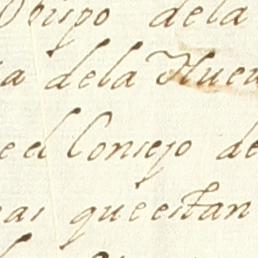 Obispo dela
a dela Nueu
e el Consejo de
as queestan